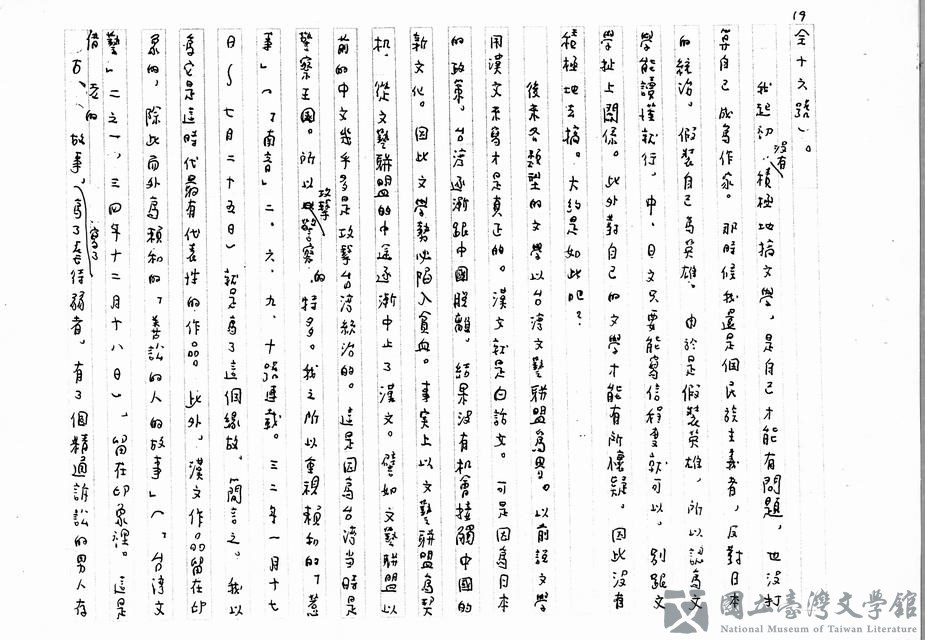 19
全十六號」。
我起初沒有積極地搞文學,是自己才能有問題,也沒打
算自己成為作家。那時候我還是個民族主義者,反對日本
的統治。假裝自己為英雄。由於是假裝英雄,所以認為文
學能讀懂就行,中、日文只要能寫信程度就可以。別跟文
學扯上關係。此外對自己的文學才能有所懷疑。因此沒有
積極地去搞。大約是如此吧?
後來各類型的文學以台灣文藝聯盟為界。以前說文學
用漢文來寫才是真正的。漢文就是白話文。可是因為日本
的政策,台灣逐漸跟中國脫離,結果沒有机會接觸中國的
新文化。因此文學勢必陷入貧血。事实上以文藝聯盟為契
机,從文藝聯盟的中途逐漸中止了漢文。譬如文藝聯盟以
前的中文幾乎多是攻擊台灣統治的。這是因為台灣当時是
警察王國。所以攻擊警察的特多。我之所以重視賴和的「惹
事」(「南音」二。六、九、十號連載。三二年一月十七
日~七月二十五日)就是為了這個緣故。簡言之。我以
為它是這時代最有代表性的作品。此外,漢文作品留在印
象的,除此而外為賴和的「善訟的人的故事」(「台灣文
藝」二之一,三四年十二月十八日),留在印象裡。這是
借古的故事,寫了為了善待弱者,有了個精通訴訟的男人有
國立臺灣文學館
National Museum of Taiwan Literature